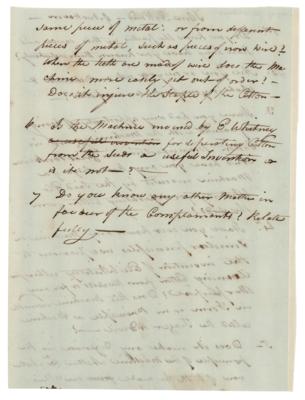 same piece of metal: or from separate
pieces of metal, such as pieces of iron wire?
When the teeth are made of wire does the Ma-
chine more easily get out of order? -
Does it injure the Staple of the Cotton -
6. Is the Machine invented by E. Whitney
a useful invention for seperating Cotton
from the Seeds a useful Invention or
is it not - ?
7 Do you know any other Matter in
favour of the Complainants? Relate
fully -